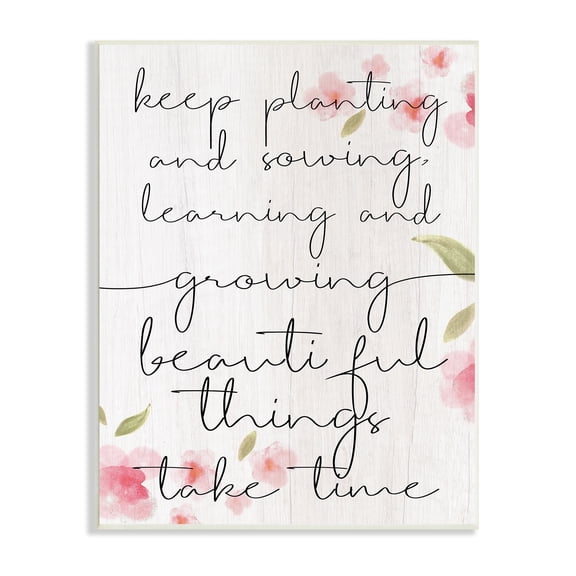 keep planting
and sowing,
learning and
growing
beautiful
things
take time